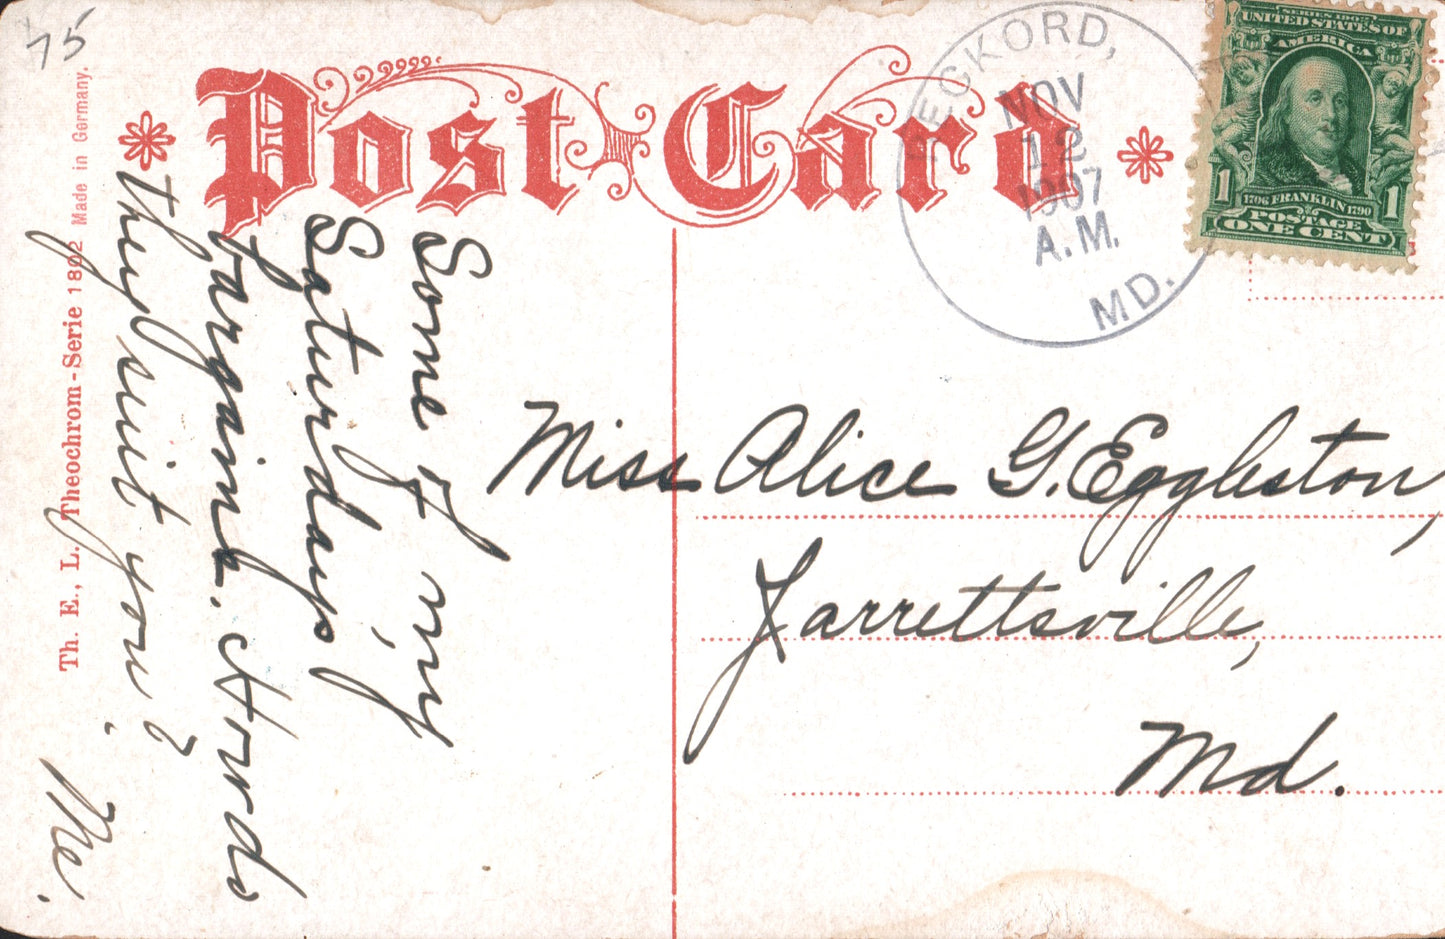 75
Post Card
RECKORD,
NOV
12
1907
A.M.
MD.
SERIES 1902
UNITED STATES OF
AMERICA
1 1
1706 FRANKLIN 1790
POSTAGE
ONE CENT
Th. E., L. Theochrom-Serie 1802 Made in Germany.
Some of my
Saturday's
bargains. How do
they suit you?
Me.
Miss Alice G. Eggleston,
Jarrettsville,
Md.